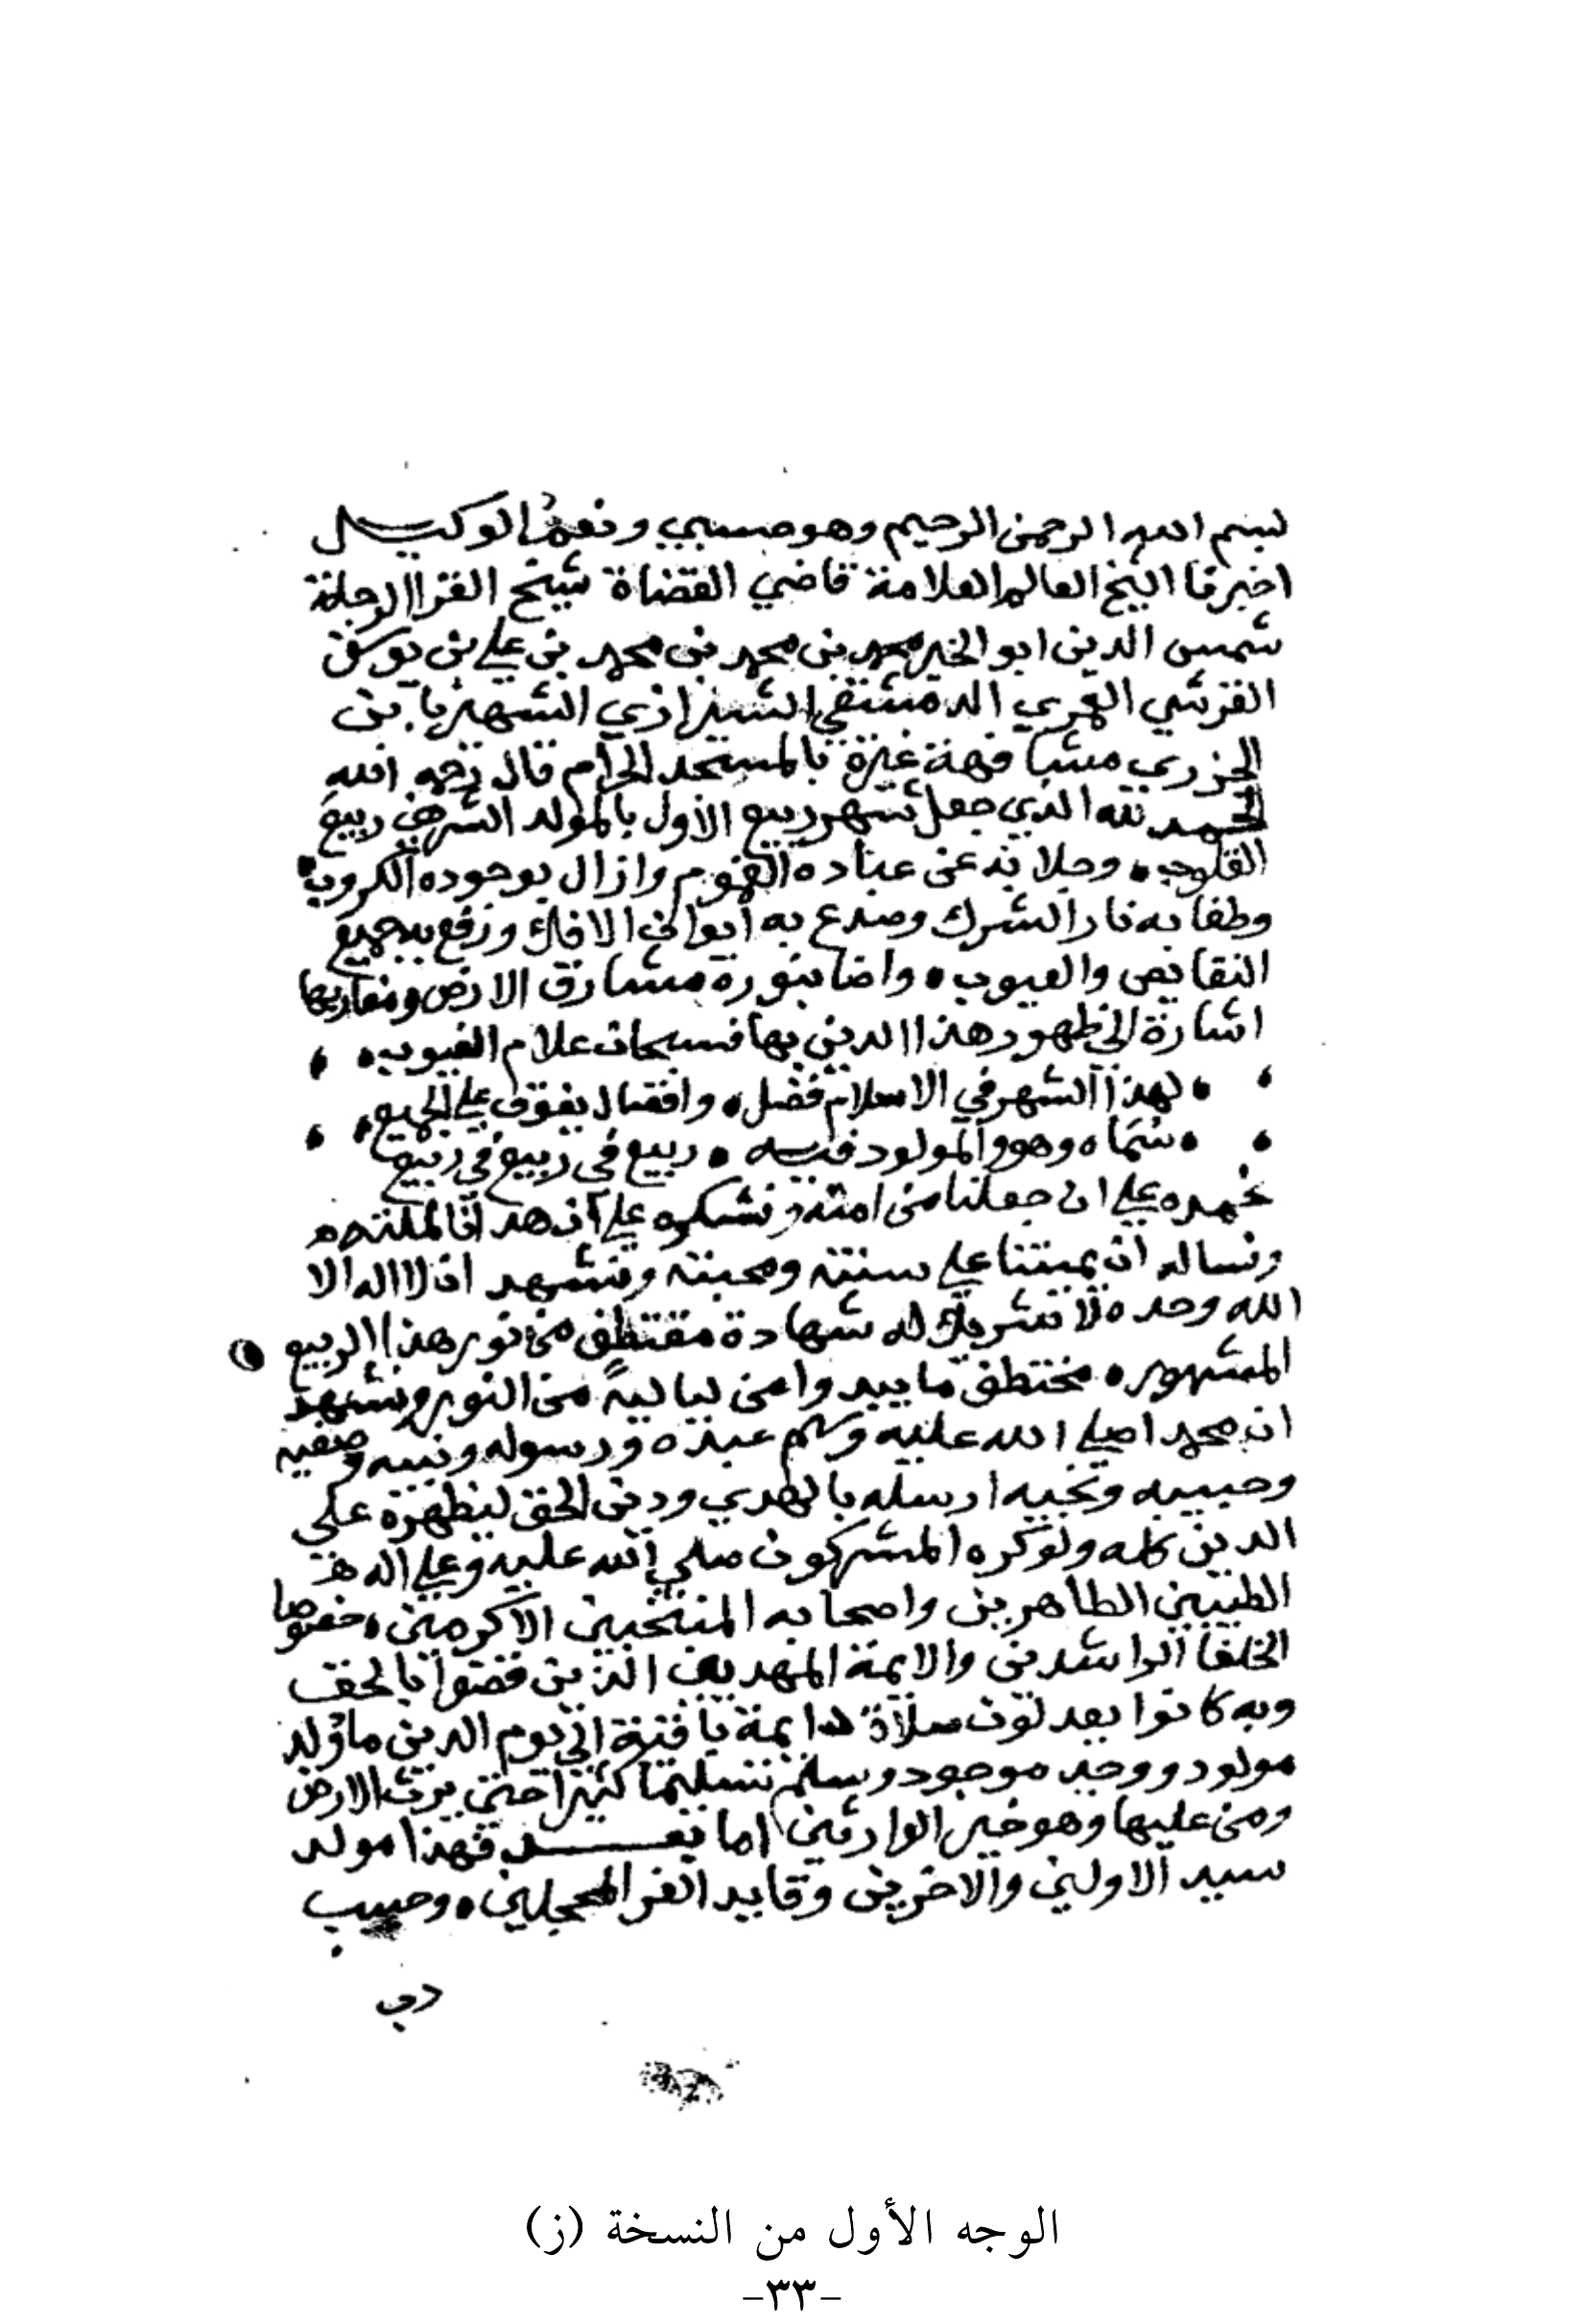 بسم الله الرحمن الرحيم وهو حسبي ونعم الوكيل
اخبرنا الشيخ العالم العلامة قاضي القضاة شيخ القرا الرحلة
شمس الدين ابو الخير محمد بن محمد بن محمد بن علي بن يوسف
القرشي العمري الدمشقي الشيرازي الشهير بابن
الجزري مشافهة غيرة بالمسجد الحرام قال رحمه الله
الحمد لله الذي جعل شهر ربيع الاول بالمولد الشريف ربيع
القلوب، وجلا به عن عباده الهموم وازال بوجوده الكروب
وطفا به نار الشرك وصدع به ايوان الافك ورفع به جميع
النقايص والعيوب، واضا بنوره مشارق الارض ومغاربها
اشارة الى ظهور هذا الدين بها فسبحان علام الغيوب،
، لهذا الشهر في الاسلام فضل، وافضال يفوق علي الجميع،
، سماه وهو والمولود فيه ، ربيع في ربيع في ربيع
نحمده علي ان جعلنا من امته ونشكره علي ان هدانا لملته
ونساله ان يميتنا علي سنته ومحبته ونشهد ان لا اله الا
الله وحده لا شريك له شهادة مقتطف من نور هذا الربيع
المشهور، مختطف ما يبدوا من لياليه من النور ونشهد
ان محمدا صلي الله عليه وسلم عبده ورسوله ونبيه وصفيه
وحبيبه ونجيه ارسله بالهدي ودين الحق ليظهره على
الدين كله ولو كره المشركون صلي الله عليه وعلي اله
الطيبين الطاهرين واصحابه المنتخبين الاكرمين، خصوصا
الخلفا الراشدين والايمة المهديين الذين قضوا بالحق
وبه كانوا يعدلون صلاة دايمة باقية الي يوم الدين ما ولد
مولود ووجد موجود وسلم تسليما كثيرا حتى يرث الارض
ومن عليها وهو خير الوارثين اما بعد فهذا مولد
سيد الاولين والاخرين وقايد الغر المحجلين، وحبيب
رب
الوجه الأول من النسخة (ز)
-٣٣-